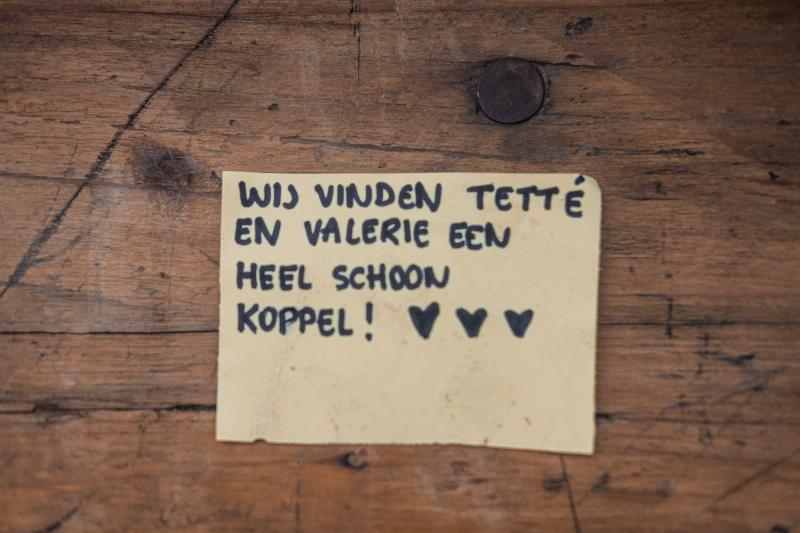 WIJ VINDEN TETTÉ
EN VALERIE EEN
HEEL SCHOON
KOPPEL! ♥ ♥ ♥